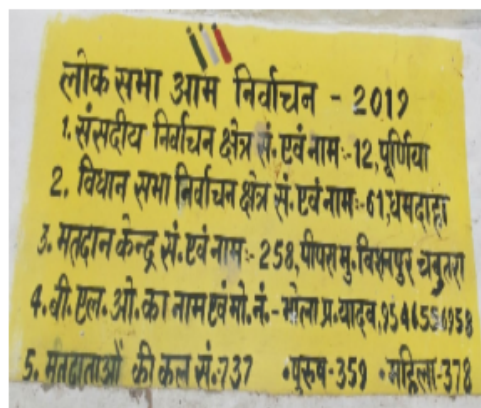 लोक सभा आम निर्वाचन - 2019
1. संसदीय निर्वाचन क्षेत्र सं. एवं नाम :-12, पूर्णिया
2. विधान सभा निर्वाचन क्षेत्र सं. एवं नाम :-61, धमदाहा
3. मतदान केन्द्र सं. एवं नाम :- 258, पीपरा मु. विशनपुर चबुतरा
4. बी. एल. ओ. का नाम एवं मो. नं. - भोला प्र. यादव,
5. मतदाताओं की कुल सं:-737 • पुरूष-359 • महिला-378